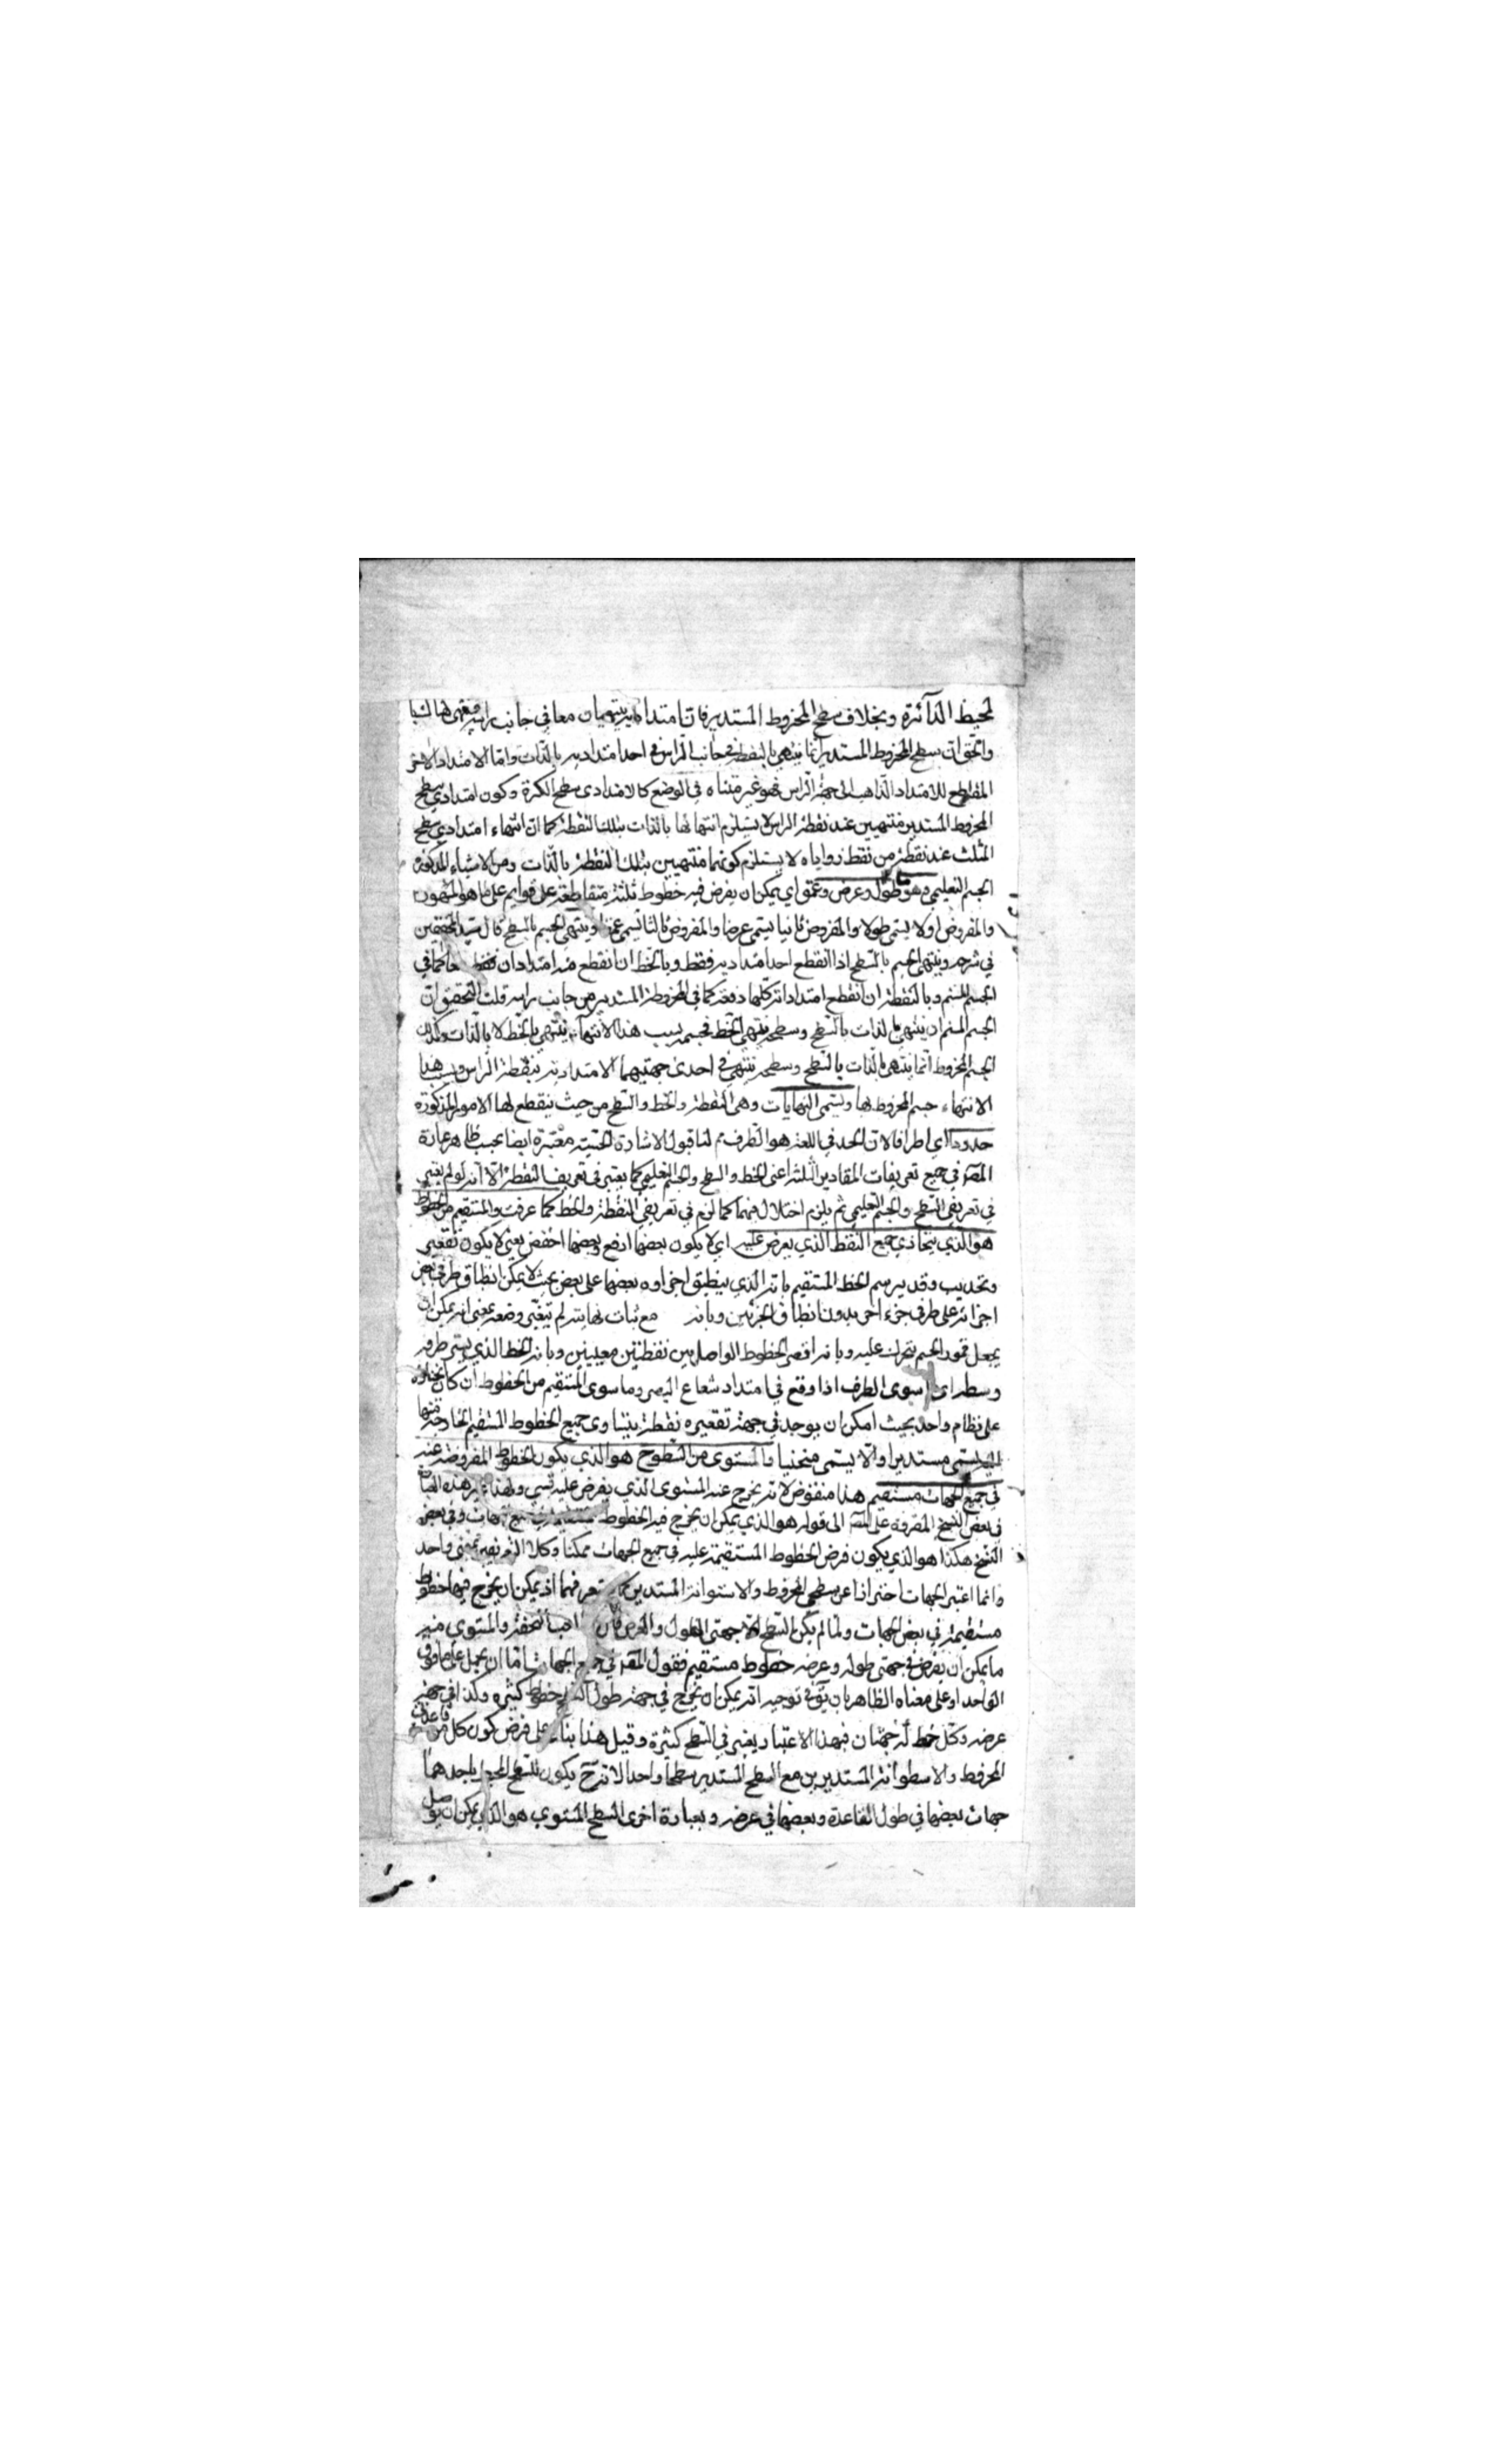 لمحيط الدآئرة وبخلاف سطح المخروط المستدير فان امتداديه ينتهيان معا في جانب راسه
والحق ان سطح المخروط المستدير انما ينتهي بالنقطة في جانب الراس في احد امتداديه بالذات واما الامتداد الاخر
المقاطع للامتداد الذاهب الى جهة الراس فهو غير متناه في الوضع كالامتدادى سطح الكرة وكون امتدادي سطح
المخروط المستدير منتهيين عند نقطة الراس لا يستلزم انتهائها بالذات بتلك النقطة كما ان انتهاء امتدادي سطح
المثلث عند نقطة من نقط زواياه لا يستلزم كونهما منتهيين بتلك النقطة بالذات ومن الاشياء المذكورة
الجسم التعليمي وهو طول وعرض وعمق اي يمكن ان يفرض فيه خطوط ثلثة متقاطعة على قوايم على ما هو المشهور
والمفروض اولا يسمى طولا والمفروض ثانيا يسمى عرضا والمفروض ثالثا يسمى عمقا وينتهي الجسم بالسطح قال سيد المحققين
في شرحه وينتهي الجسم بالسطح اذا انقطع احد امتداديه فقط وبالخط ان انقطع منه امتدادان فقط معا كما في
الجسم المسنم وبالنقطة ان انقطع امتداداته كلها دفعة كما في المخروطة المستدير من جانب راسه قلت التحقيق ان
الجسم المسنم ان ينتهي بالذات بالسطح وسطحه ينتهي بالخط فجسمه بسبب هذا الانتهاء ينتهي بالخط لا بالذات وكذلك
الجسم المخروط انما ينتهي بالذات بالسطح وسطحه ينتهي في احدى جهتيهما الامتدادية بنقطة الراس وبسبب هذا
الانتهاء جسم المخروط بها وتسمى النهايات وهى النقطة والخط والسطح من حيث ينقطع لها الامور المذكورة
حدودا اي اطرافا لان الحد في اللغة هو الطرف ثم لنا قبول الاشارة الحسية معتبرة ايضا بحسب ظاهر عبارة
المصـ في جميع تعريفات المقادير الثلثة اعنى الخط والسطح والجسم التعليمي كما يعتبر في تعريف النقطة الا انه لو لم يعتبر
في تعريفي السطح والجسم التعليمي ثم يلزم اختلال فيهما كما لزم في تعريفي النقطة والخط كما عرفت والمستقيم من الخطوط
هو الذي يتحاذي جميع النقط الذي يعرض عليه اي لا يكون بعضها ارفع وبعضها اخفض يعنى لا يكون تقعير
وتحديب وقد يرسم الخط المستقيم بانه الذي ينطبق اجزاوه بعضها على بعض بحيث لا يمكن انطباق طرفي بعض
اجزائه على طرفي جزء اخر بدون انطباق الجزئين وبانه مع ثبات نهايته لم يتغير وضعه بمعنى انه يمكن ان
يجعل محور الجسم يتحرك عليه وبانه اقصر الخطوط الواصل بين نقطتين معينين وبانه الخط الذي يستر طرفه
وسطه اى سوى الطرف اذا وقع في امتداد شعاع البصر وما سوى المستقيم من الخطوط ان كان
على نظام واحد بحيث امكن ان يوجد في جهة تقعيره نقطة يتساوى جميع الخطوط المستقيم الخارجة منها
اليه يسمى مستديرا والا يسمى منحنيا والمستوى من السطوح هو الذي يكون الخطوط المفروضة عنه
في جميع الجهات مستقيم هذا منقوض لانه يخرج عنه المستوى الذي يفرض عليه قسي ولهذا غير هذه العبارة
في بعض النسخ المقروة على المصـ الى قوله هو الذي يمكن ان يخرج فيه الخطوط مستقيمة في جميع الجهات وفي بعض
النسخ هكذا هو الذي يكون فرض الخطوط المستقيمة عليه في جميع الجهات ممكنا وكلا التعريفين بمعنى واحد
وانما اعتبر الجهات احترازا عن سطحي المخروط والاسطوانة المستديرين كما ستعرفهما اذ يمكن ان يخرج فيها خطوط
مستقيمة في بعض الجهات ولما لم يكن للسطح الا جهتى الطول والعرض والمستوى منه
ما يمكن ان يفرض في جهتى طوله وعرضه خطوط مستقيم فقول المصـ في جميع الجهات اما ان يحمل على ما فوق
الواحد او على معناه الظاهر بان يق في توجيه انه يمكن ان يخرج في جهة طول السطح خطوط كثيرة وكذا في جهة
عرضه وكل خط له جهتان فبهذا الاعتبار يفرض في السطح كثيرة وقيل هذا بناء على فرض كون كل من قاعدتي
المخروط والاسطوانة المستديرين مع السطح المستدير سطحا واحدا لانه ح يكون للسطح المحيط باحدهما
جهات بعضها في طول القاعدة وبعضها في عرضه وبعبارة اخرى السطح المستوي هو الذي يمكن ان يوصل